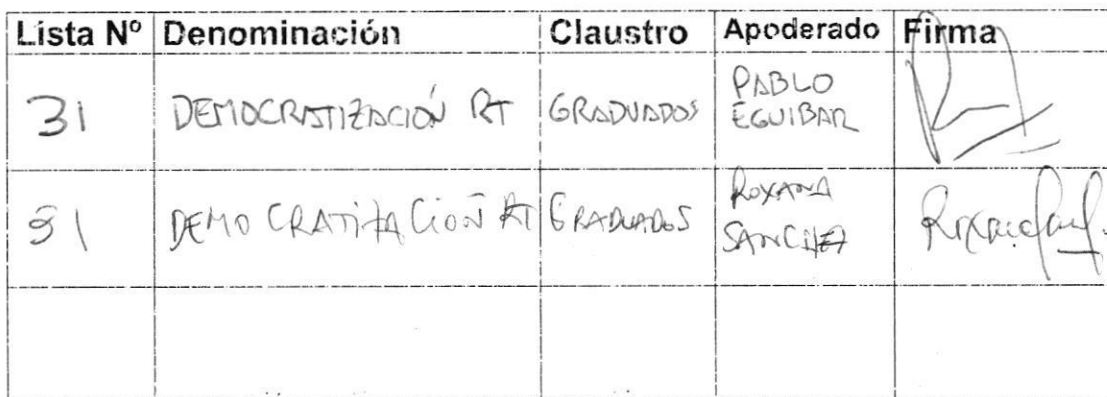 Lista Nº Denominación Claustro Apoderado Firma
31 DEMOCRATIZACIÓN RT GRADUADOS PABLO
EGUIBAR
31 DEMOCRATIZACIÓN RT GRADUADOS ROXANA
SANCHEZ